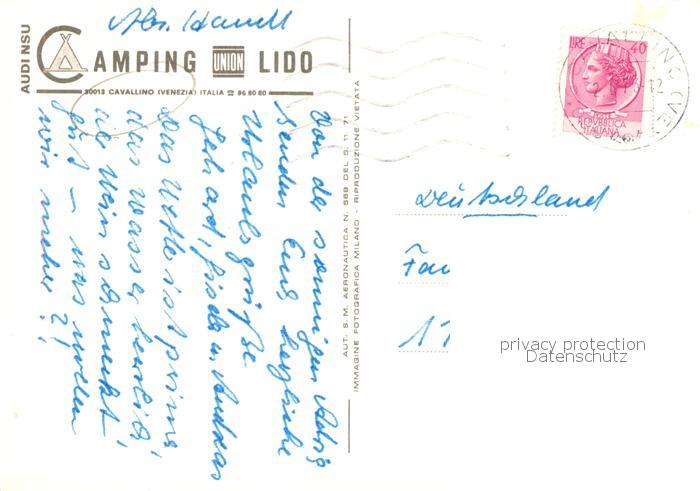 Abs. Hanell
AUDI NSU
CAMPING UNION LIDO
30013 CAVALLINO (VENEZIA) ITALIA ☎ 96 80 80
Von der sonnigen Adria
senden Euch herzliche
Urlaubsgrüße
Gerhart, Gisela u. Andreas
Das Wetter ist prima,
das Wasser herrlich,
der Wein schmeckt
gut – was wollen
wir mehr?!
AUT. S. M. AERONAUTICA N. 568 DEL 5. 11. 71
IMMAGINE FOTOGRAFICA MILANO - RIPRODUZIONE VIETATA
LIRE 40
POSTE
REPUBBLICA
ITALIANA
Deutschland
Fam
11
privacy protection
Datenschutz